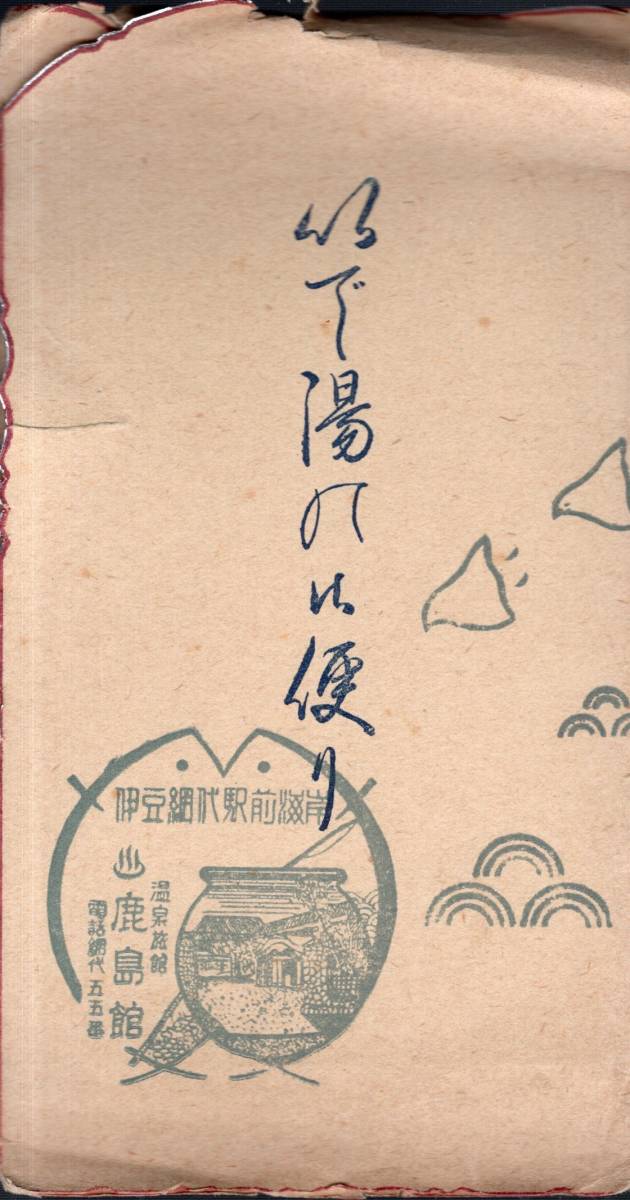 いで湯の御便り
伊豆網代駅前海岸
温泉旅館
♨鹿島館
電話網代五五番